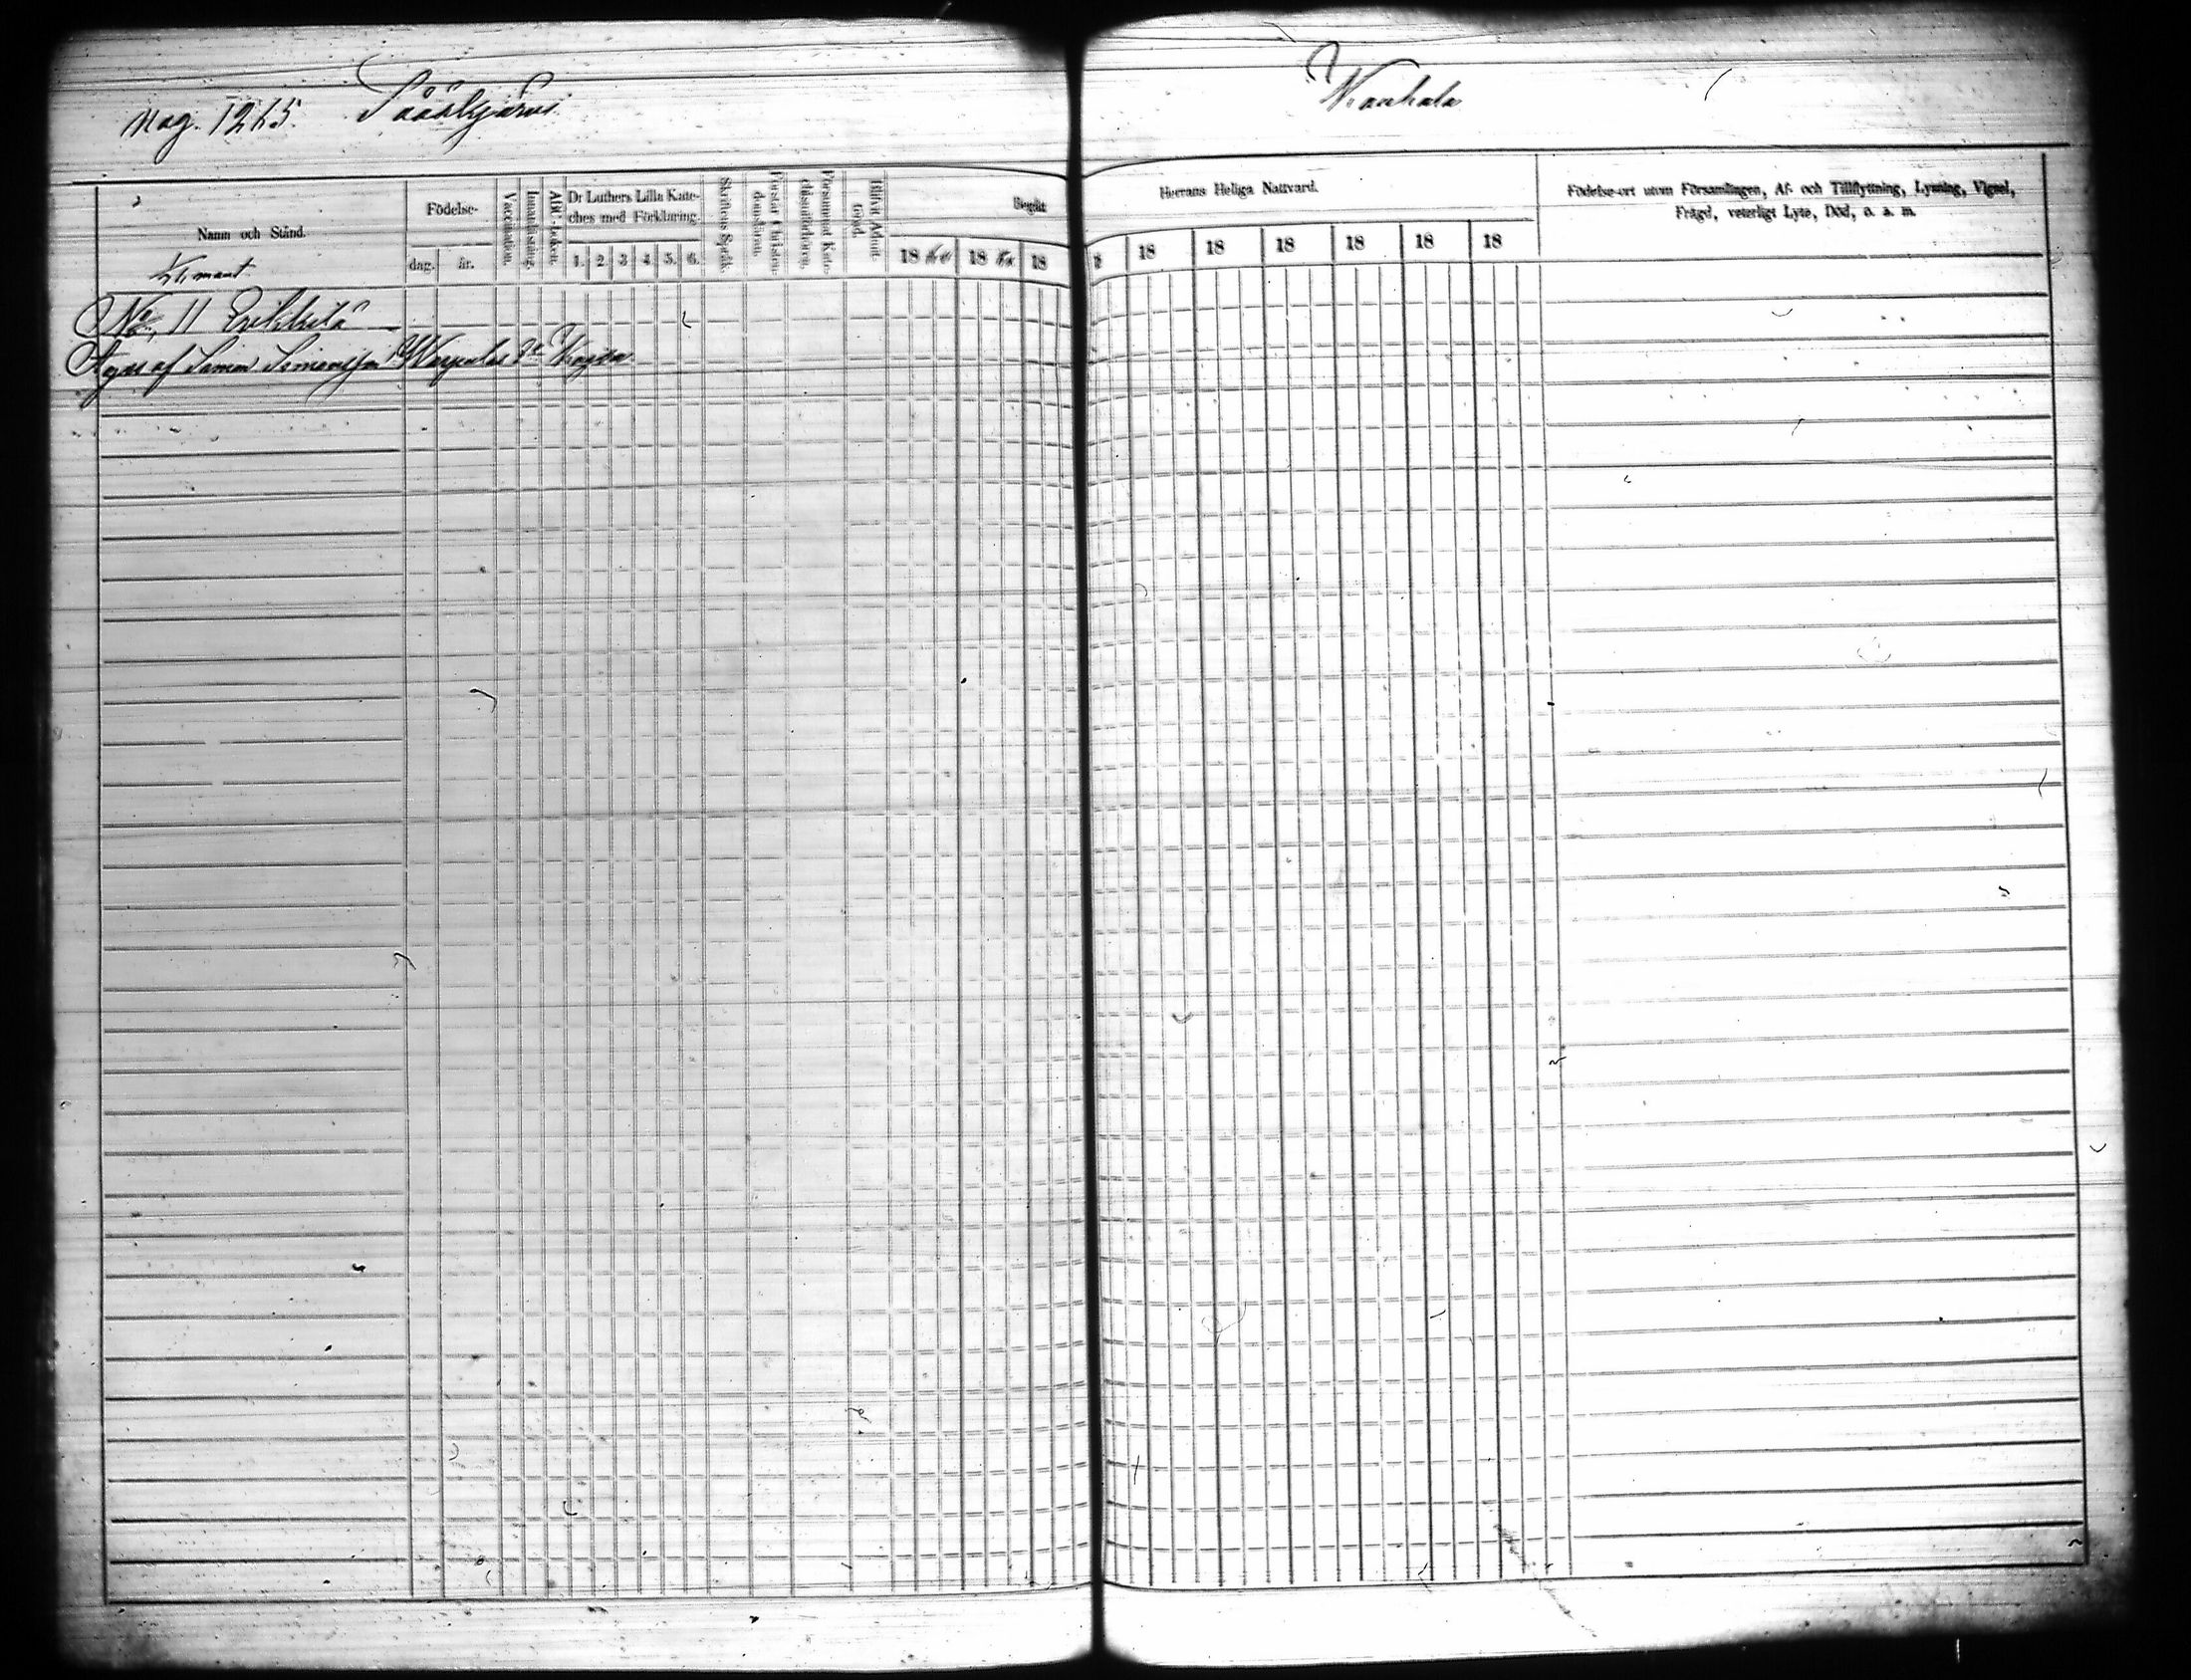 Mag. 1265. Sääskjärvi Wanhala
Namn och Stånd.
Födelse-
dag. år.
Vaccination.
Innanläsning.
ABC-boken.
Dr Luthers Lilla Kate-
ches med Förklaring.
1. 2. 3 4. 5. 6.
Skriftens Språk.
Förstår Christen-
domsläran.
Försummat Kate-
chismiförhören.
Blifvit Admit-
terad.
Begått
Herrans Heliga Nattvard.
18 18 18
18 18 18 18 18 18
Födelse-ort utom Församlingen, Af- och Tillflyttning, Lysning, Vigsel,
Frägd, veterligt Lyte, Död, o. s. m.
No 11 Erikkilä
Äges af Simon Simonsson